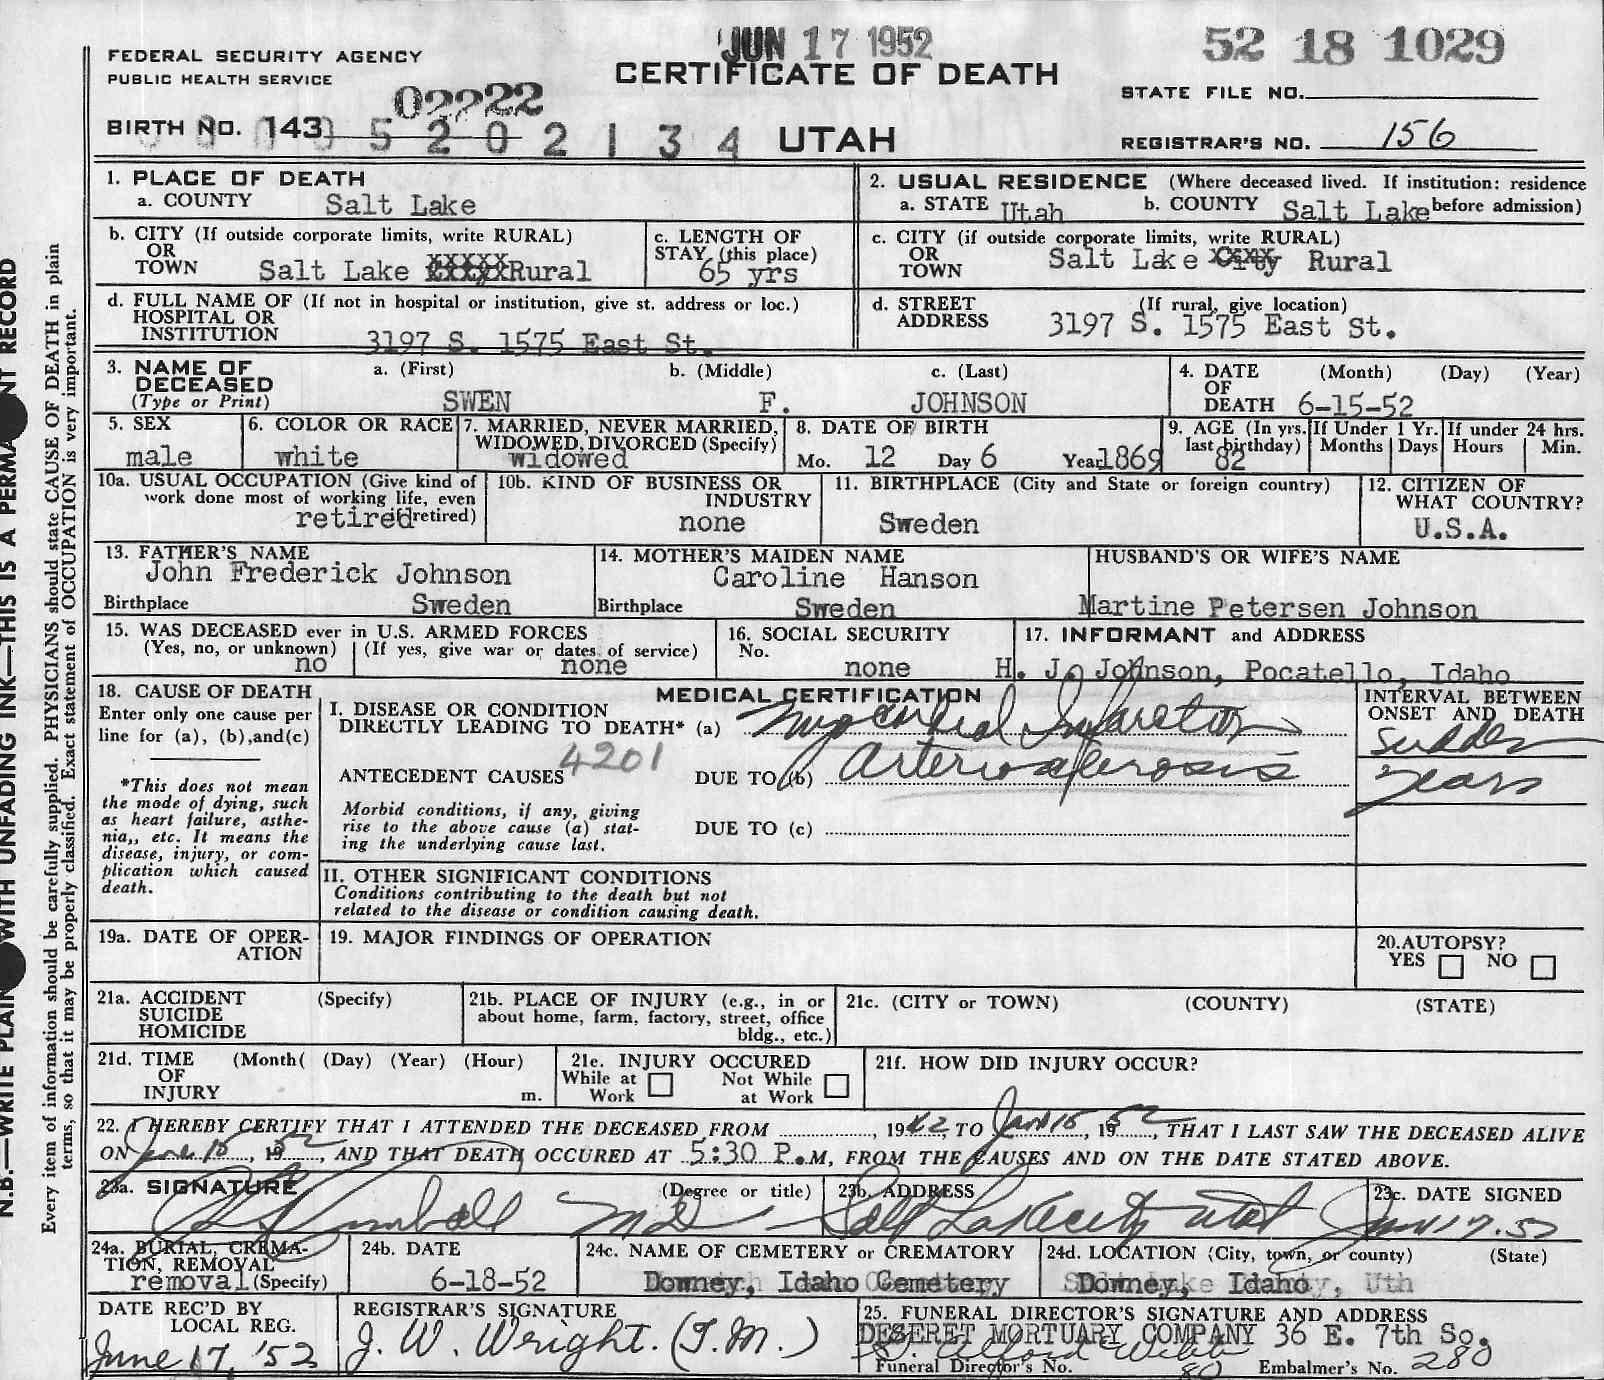 JUN 17 1952
52 18 1029
FEDERAL SECURITY AGENCY
PUBLIC HEALTH SERVICE
CERTIFICATE OF DEATH
STATE FILE NO.
02222
BIRTH NO. 143
5 2 0 2 1 3 4
UTAH
REGISTRAR'S NO. 156
1. PLACE OF DEATH
a. COUNTY Salt Lake
2. USUAL RESIDENCE (Where deceased lived. If institution: residence before admission)
a. STATE Utah b. COUNTY Salt Lake
b. CITY (If outside corporate limits, write RURAL)
OR
TOWN Salt Lake City Rural
c. LENGTH OF
STAY (this place)
65 yrs
c. CITY (if outside corporate limits, write RURAL)
OR
TOWN Salt Lake City Rural
d. FULL NAME OF (If not in hospital or institution, give st. address or loc.)
HOSPITAL OR
INSTITUTION 3197 S. 1575 East St.
d. STREET (If rural, give location)
ADDRESS 3197 S. 1575 East St.
3. NAME OF
DECEASED
(Type or Print)
a. (First) b. (Middle) c. (Last)
SWEN F. JOHNSON
4. DATE (Month) (Day) (Year)
OF
DEATH 6-15-52
5. SEX
male
6. COLOR OR RACE
white
7. MARRIED, NEVER MARRIED,
WIDOWED, DIVORCED (Specify)
widowed
8. DATE OF BIRTH
Mo. 12 Day 6 Year 1869
9. AGE (In yrs.
last birthday)
82
If Under 1 Yr.
Months Days
If under 24 hrs.
Hours Min.
10a. USUAL OCCUPATION (Give kind of
work done most of working life, even
if retired)
retired
10b. KIND OF BUSINESS OR
INDUSTRY
none
11. BIRTHPLACE (City and State or foreign country)
Sweden
12. CITIZEN OF
WHAT COUNTRY?
U.S.A.
13. FATHER'S NAME
John Frederick Johnson
Birthplace Sweden
14. MOTHER'S MAIDEN NAME
Caroline Hanson
Birthplace Sweden
HUSBAND'S OR WIFE'S NAME
Martine Petersen Johnson
15. WAS DECEASED ever in U.S. ARMED FORCES
(Yes, no, or unknown) (If yes, give war or dates of service)
no none
16. SOCIAL SECURITY
No.
none
17. INFORMANT and ADDRESS
H. J. Johnson, Pocatello, Idaho
18. CAUSE OF DEATH
Enter only one cause per
line for (a), (b), and (c)
*This does not mean
the mode of dying, such
as heart failure, asthe-
nia,, etc. It means the
disease, injury, or com-
plication which caused
death.
MEDICAL CERTIFICATION
I. DISEASE OR CONDITION
DIRECTLY LEADING TO DEATH* (a) Myocardial Infarction
4201
ANTECEDENT CAUSES DUE TO (b) Arteriosclerosis
Morbid conditions, if any, giving
rise to the above cause (a) stat-
ing the underlying cause last.
DUE TO (c)
INTERVAL BETWEEN
ONSET AND DEATH
Sudden
Years
II. OTHER SIGNIFICANT CONDITIONS
Conditions contributing to the death but not
related to the disease or condition causing death.
19a. DATE OF OPER-
ATION
19. MAJOR FINDINGS OF OPERATION
20. AUTOPSY?
YES NO
21a. ACCIDENT (Specify)
SUICIDE
HOMICIDE
21b. PLACE OF INJURY (e.g., in or
about home, farm, factory, street, office
bldg., etc.)
21c. (CITY or TOWN) (COUNTY) (STATE)
21d. TIME (Month( (Day) (Year) (Hour)
OF
INJURY m.
21e. INJURY OCCURED
While at Work Not While at Work
21f. HOW DID INJURY OCCUR?
22. I HEREBY CERTIFY THAT I ATTENDED THE DECEASED FROM , 1942, TO June 15, 1952, THAT I LAST SAW THE DECEASED ALIVE
ON June 15, 1952, AND THAT DEATH OCCURED AT 5:30 P.M, FROM THE CAUSES AND ON THE DATE STATED ABOVE.
23a. SIGNATURE (Degree or title)
Kimball MD
23b. ADDRESS
Salt Lake City Utah
23c. DATE SIGNED
June 17.52
24a. BURIAL, CREMA-
TION, REMOVAL
removal (Specify)
24b. DATE
6-18-52
24c. NAME OF CEMETERY or CREMATORY
Downey, Idaho Cemetery
24d. LOCATION (City, town, or county) (State)
Downey, Idaho
DATE REC'D BY
LOCAL REG.
June 17, '52
REGISTRAR'S SIGNATURE
J. W. Wright. (I.M.)
25. FUNERAL DIRECTOR'S SIGNATURE AND ADDRESS
DESERET MORTUARY COMPANY 36 E. 7th So.
Alford Webb
Funeral Director's No. 80 Embalmer's No. 280
N.B.—WRITE PLAIN WITH UNFADING INK—THIS IS A PERMA NT RECORD
Every item of information should be carefully supplied. PHYSICIANS should state CAUSE OF DEATH in plain
terms, so that it may be properly classified. Exact statement of OCCUPATION is very important.